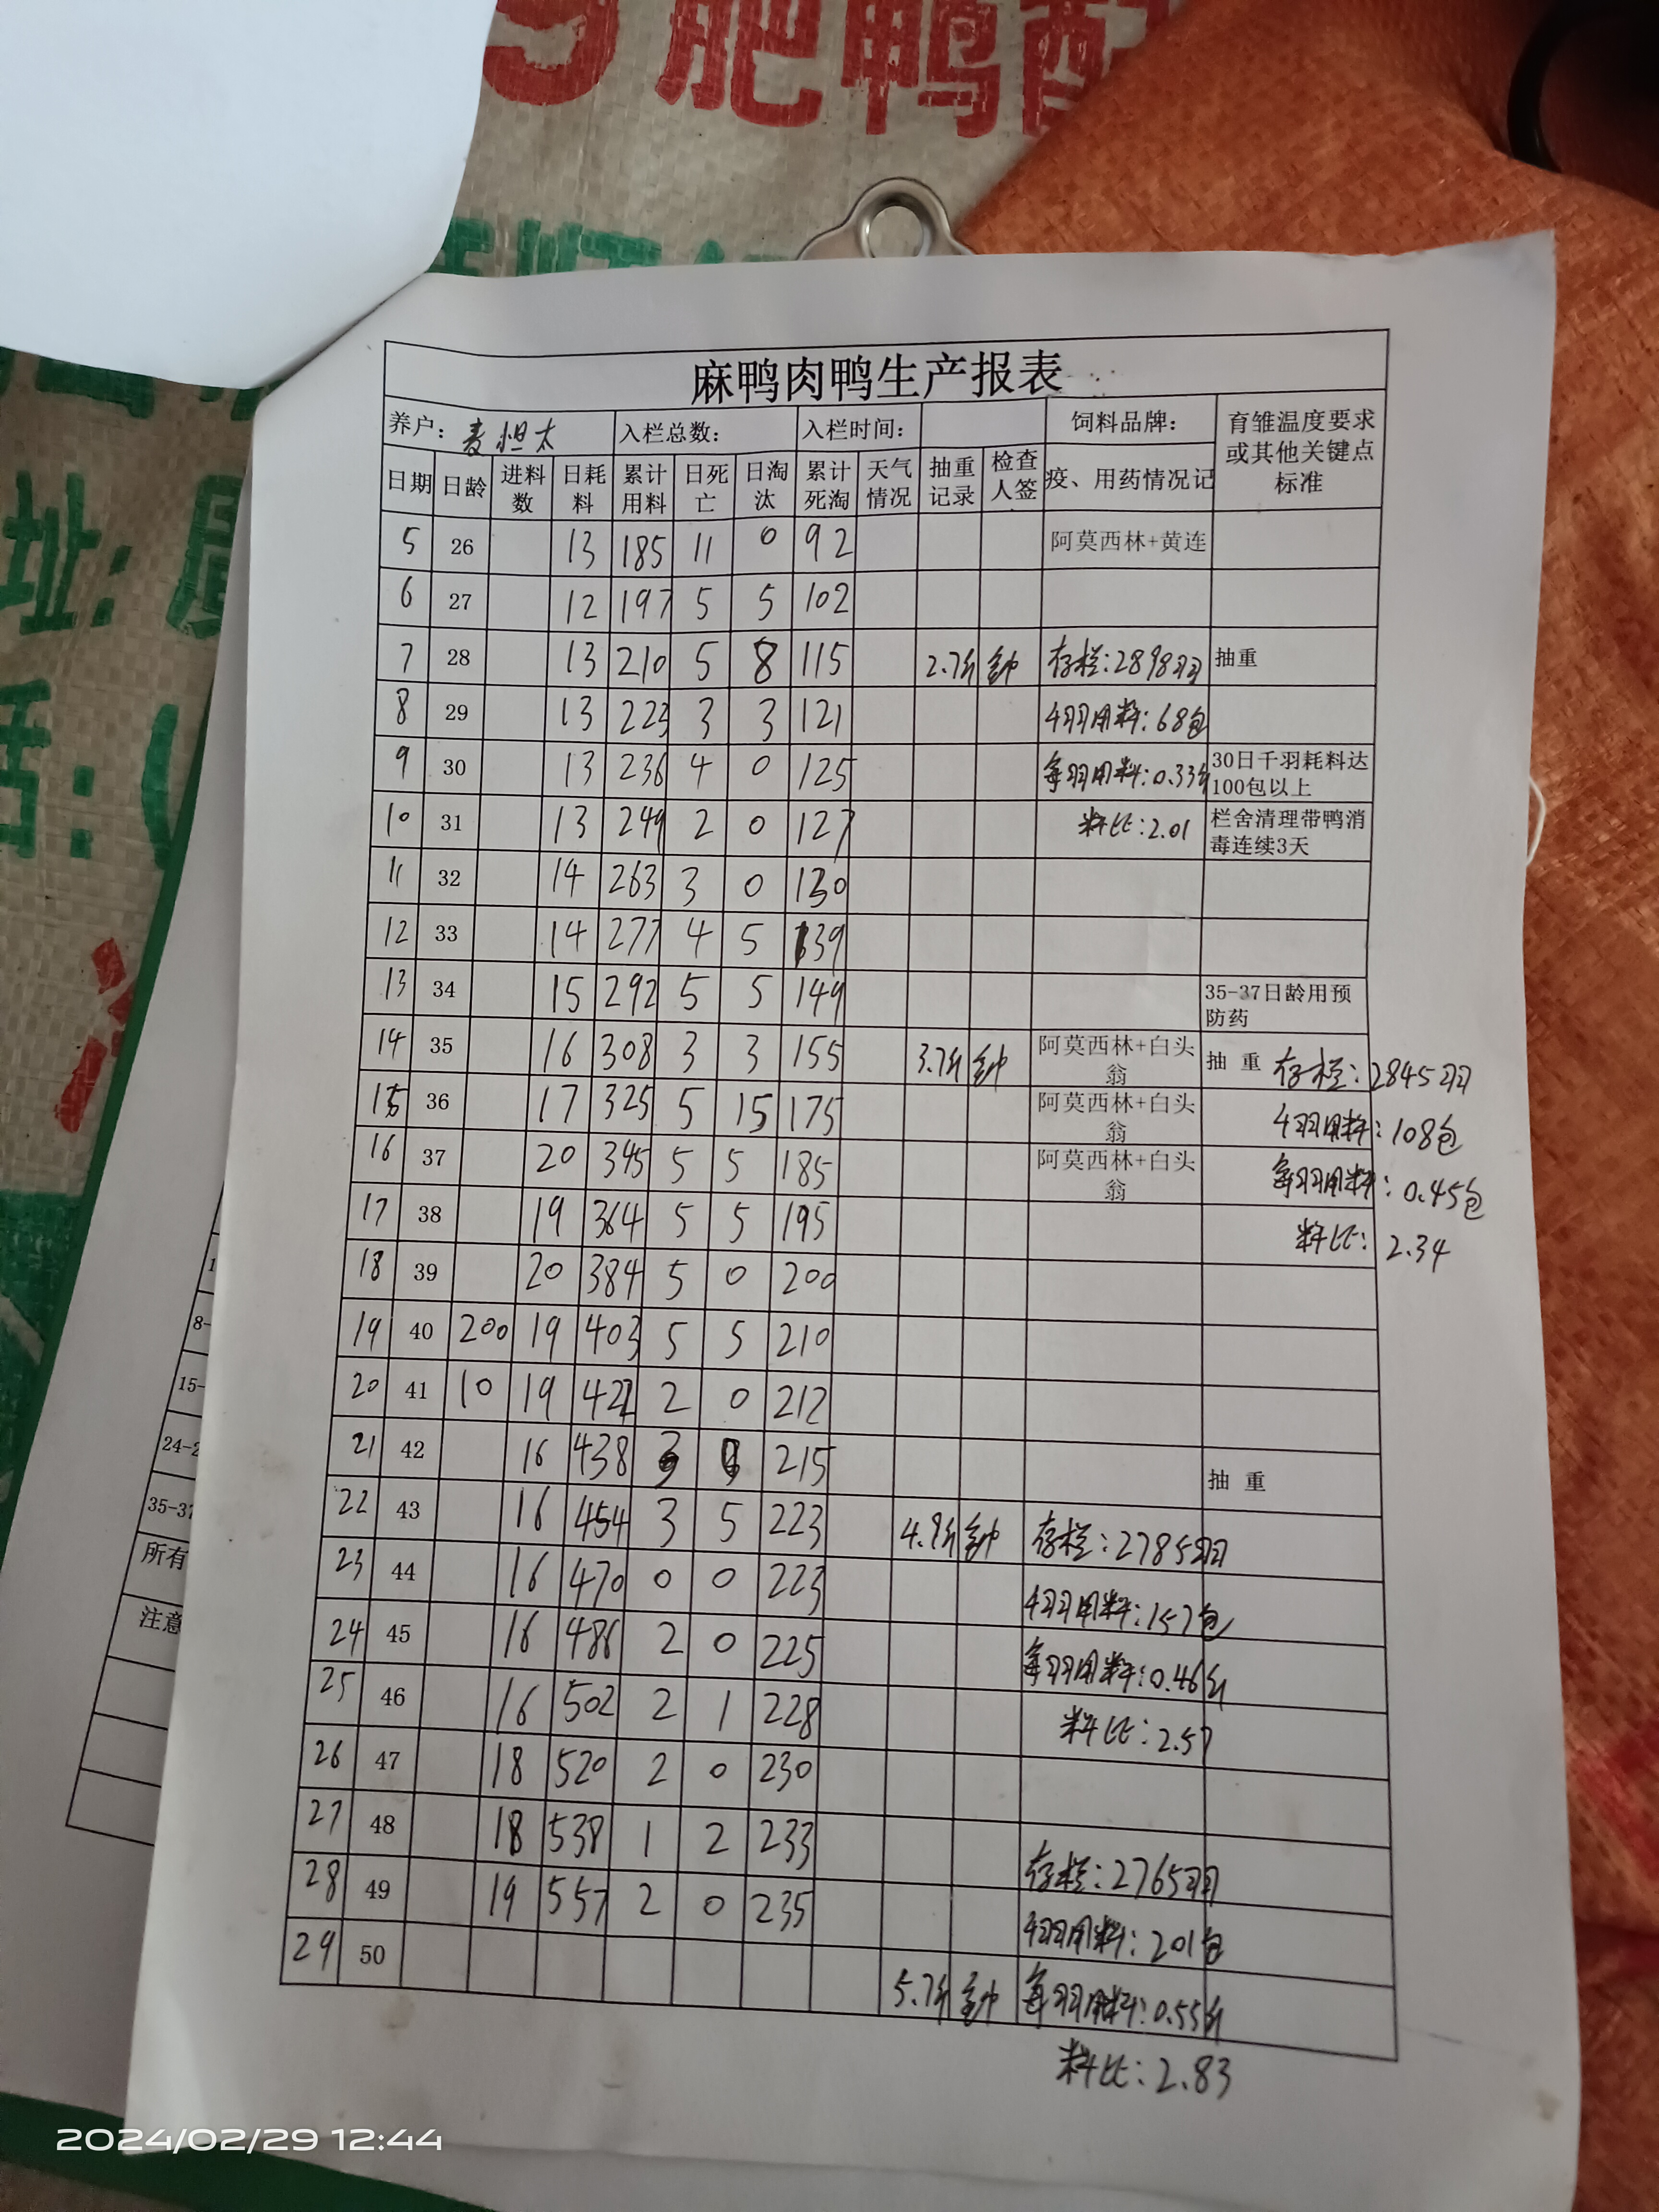 肥鸭配
址:
话:(
麻鸭肉鸭生产报表
养户: 麦怛太 入栏总数: 入栏时间: 饲料品牌: 育雏温度要求或其他关键点标准
日期 日龄 进料数 日耗料 累计用料 日死亡 日淘汰 累计死淘 天气情况 抽重记录 检查人签 疫、用药情况记
5 26 13 185 11 0 92 阿莫西林+黄连
6 27 12 197 5 5 102
7 28 13 210 5 8 115 2.7斤 存栏:2898羽 抽重
8 29 13 223 3 3 121 千羽用料:68包
9 30 13 236 4 0 125 每羽用料:0.33斤 30日千羽耗料达100包以上
10 31 13 249 2 0 127 料比:2.01 栏舍清理带鸭消毒连续3天
11 32 14 263 3 0 130
12 33 14 277 4 5 139
13 34 15 292 5 5 149 35-37日龄用预防药
14 35 16 308 3 3 155 3.7斤 阿莫西林+白头翁 抽 重 存栏:2845羽
15 36 17 325 5 15 175 阿莫西林+白头翁 千羽用料:108包
16 37 20 345 5 5 185 阿莫西林+白头翁 每羽用料:0.45包
17 38 19 364 5 5 195 料比:2.34
18 39 20 384 5 0 200
19 40 200 19 403 5 5 210
20 41 10 19 422 2 0 212
21 42 16 438 3 0 215 抽 重
22 43 16 454 3 5 223 4.9斤 存栏:2785羽
23 44 16 470 0 0 223 千羽用料:157包
24 45 16 486 2 0 225 每羽用料:0.46斤
25 46 16 502 2 1 228 料比:2.57
26 47 18 520 2 0 230
27 48 18 538 1 2 233 存栏:2765羽
28 49 19 557 2 0 235 千羽用料:201包
29 50 5.7斤 每羽用料:0.55斤
料比:2.83
1
8-
15-
24-2
35-37
所有
注意
2024/02/29 12:44